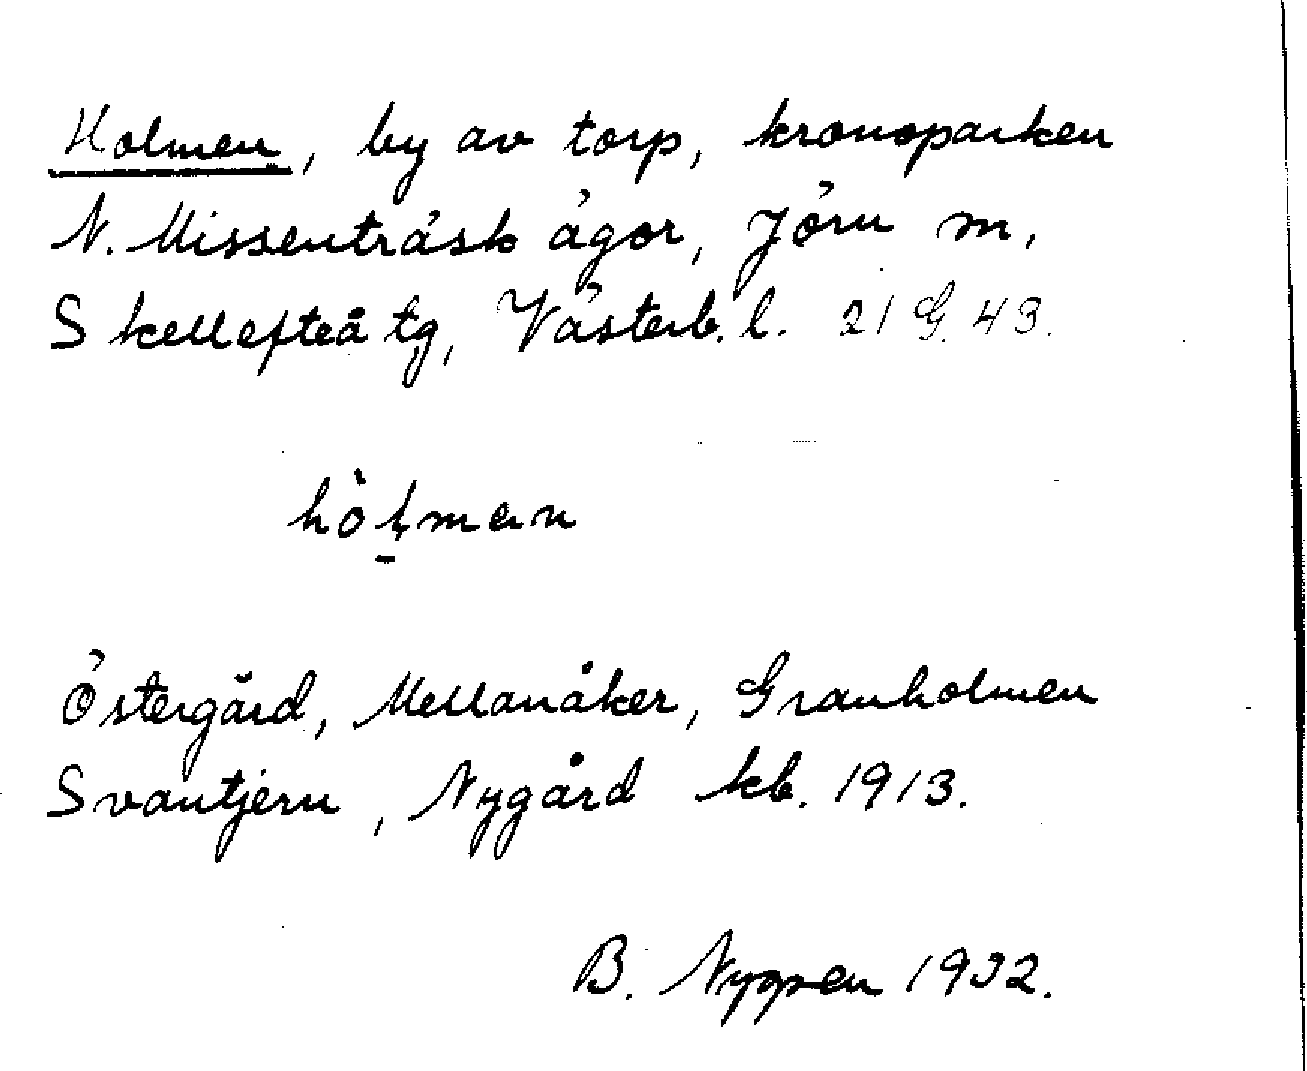 Holmen, by av torp, kronoparken
N. Missenträsk ägor, Jörn sn,
Skellefteå tg, Västerb. l. 21 G. 43.
hòḷman
Östergård, Mellanåker, Granholmen
Svantjern, Nygård kb. 1913.
B. Nyppen 1932.